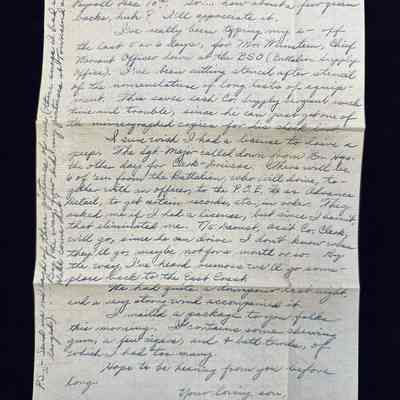 Payroll Dec 10th. So... how about a few green
backs, huh? I'll appreciate it.
I've really been typing my a - off
the last 5 or 6 days, for Mr. Weinstein, Chief
Warrant Officer down at the BSO (Battalion Supply
Office). I've been cutting stencil after stencil
of the nomenclature of long lists of equip-
ment. This saves each Co. supply sergeant much
time and trouble, since he can just get one of
the mimeographed copies for his check list.
I sure wish I had a license to drive a
jeep. The Sgt. Major called down from Bn. Hqs.
the other day for Clerk-drivers. There will be
6 of 'em from the Battalion, who will drive, to-
gether with an officer, to the P.O.E. as an Advance
Detail, to get certain records, etc., in order. They
asked me if I had a license, but since I haven't
that eliminated me. Mc Namut, ass't Co. Clerk,
will go, since he can drive. I don't know when
they'll go, maybe not for a month or so. By
the way, I've heard rumors we'll go some-
place back to the East Coast.
We had quite a downpour last night,
and a very strong wind accompanied it.
I mailed a package to you folks
this morning. It contains some chewing
gum, a few cigars, and 4 bath towels, of
which I had too many.
Hope to be hearing from you before
long.
Your loving son,